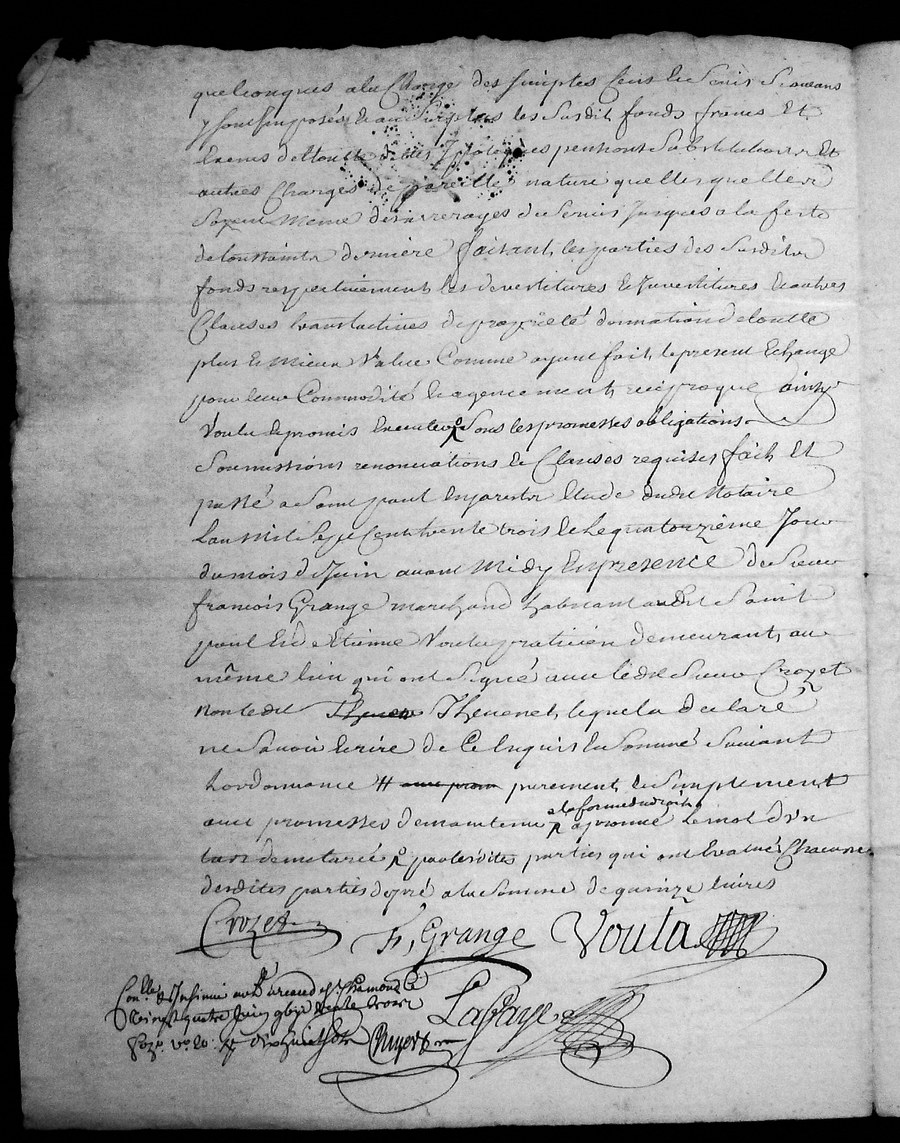 quelconques a la Charge des simples Cens et Servis
y sont imposés et au surplus les susdits fonds francs Et
Exemts de toutte dettes ypoteques pentions substitutions Et
autres Charges de pareille nature quelles quelles
soyent meme des arrerages du servis jusques a la feste
de toussaints derniere faisant les parties des susdits
fonds respectivement les devestitures Et Investitures Et autres
Clauses translactives de proprieté donnation de toutte
plus Et mieux value Comme ayant fait le present Echange
pour leur Commodité Et agencement reciproque ainsy
voulu Et promis Executer sous les promesses obligations
soumissions renonciations Et Clauses requises fait Et
passé a saint paul en jarests Etude dudit Notaire
Lan Mil sept Cent trente trois et le quatorzième Jour
du mois de Juin avant Midy En presence de sieur
francois Grange marchand habitant audit saint
paul Et de Etienne Voulta praticien demeurant au
même lieu qui ont signé avec ledit sieur Crozet
non ledit Thevenet lequel a declaré
ne savoir Ecrire de Ce Enquis Et sommé suivant
Lordonnance purement Et simplement
a la forme du droit
avec promesses de maintenir aprouvé le mot
par lesdites parties qui ont Evalué Chacune
desdites parties a la somme de quinze livres
Crozet F, Grange Voulta
Con.lle & Insinué au Bureau de St. Chamond Le
vingt quatre juin trente trois
Lafaye